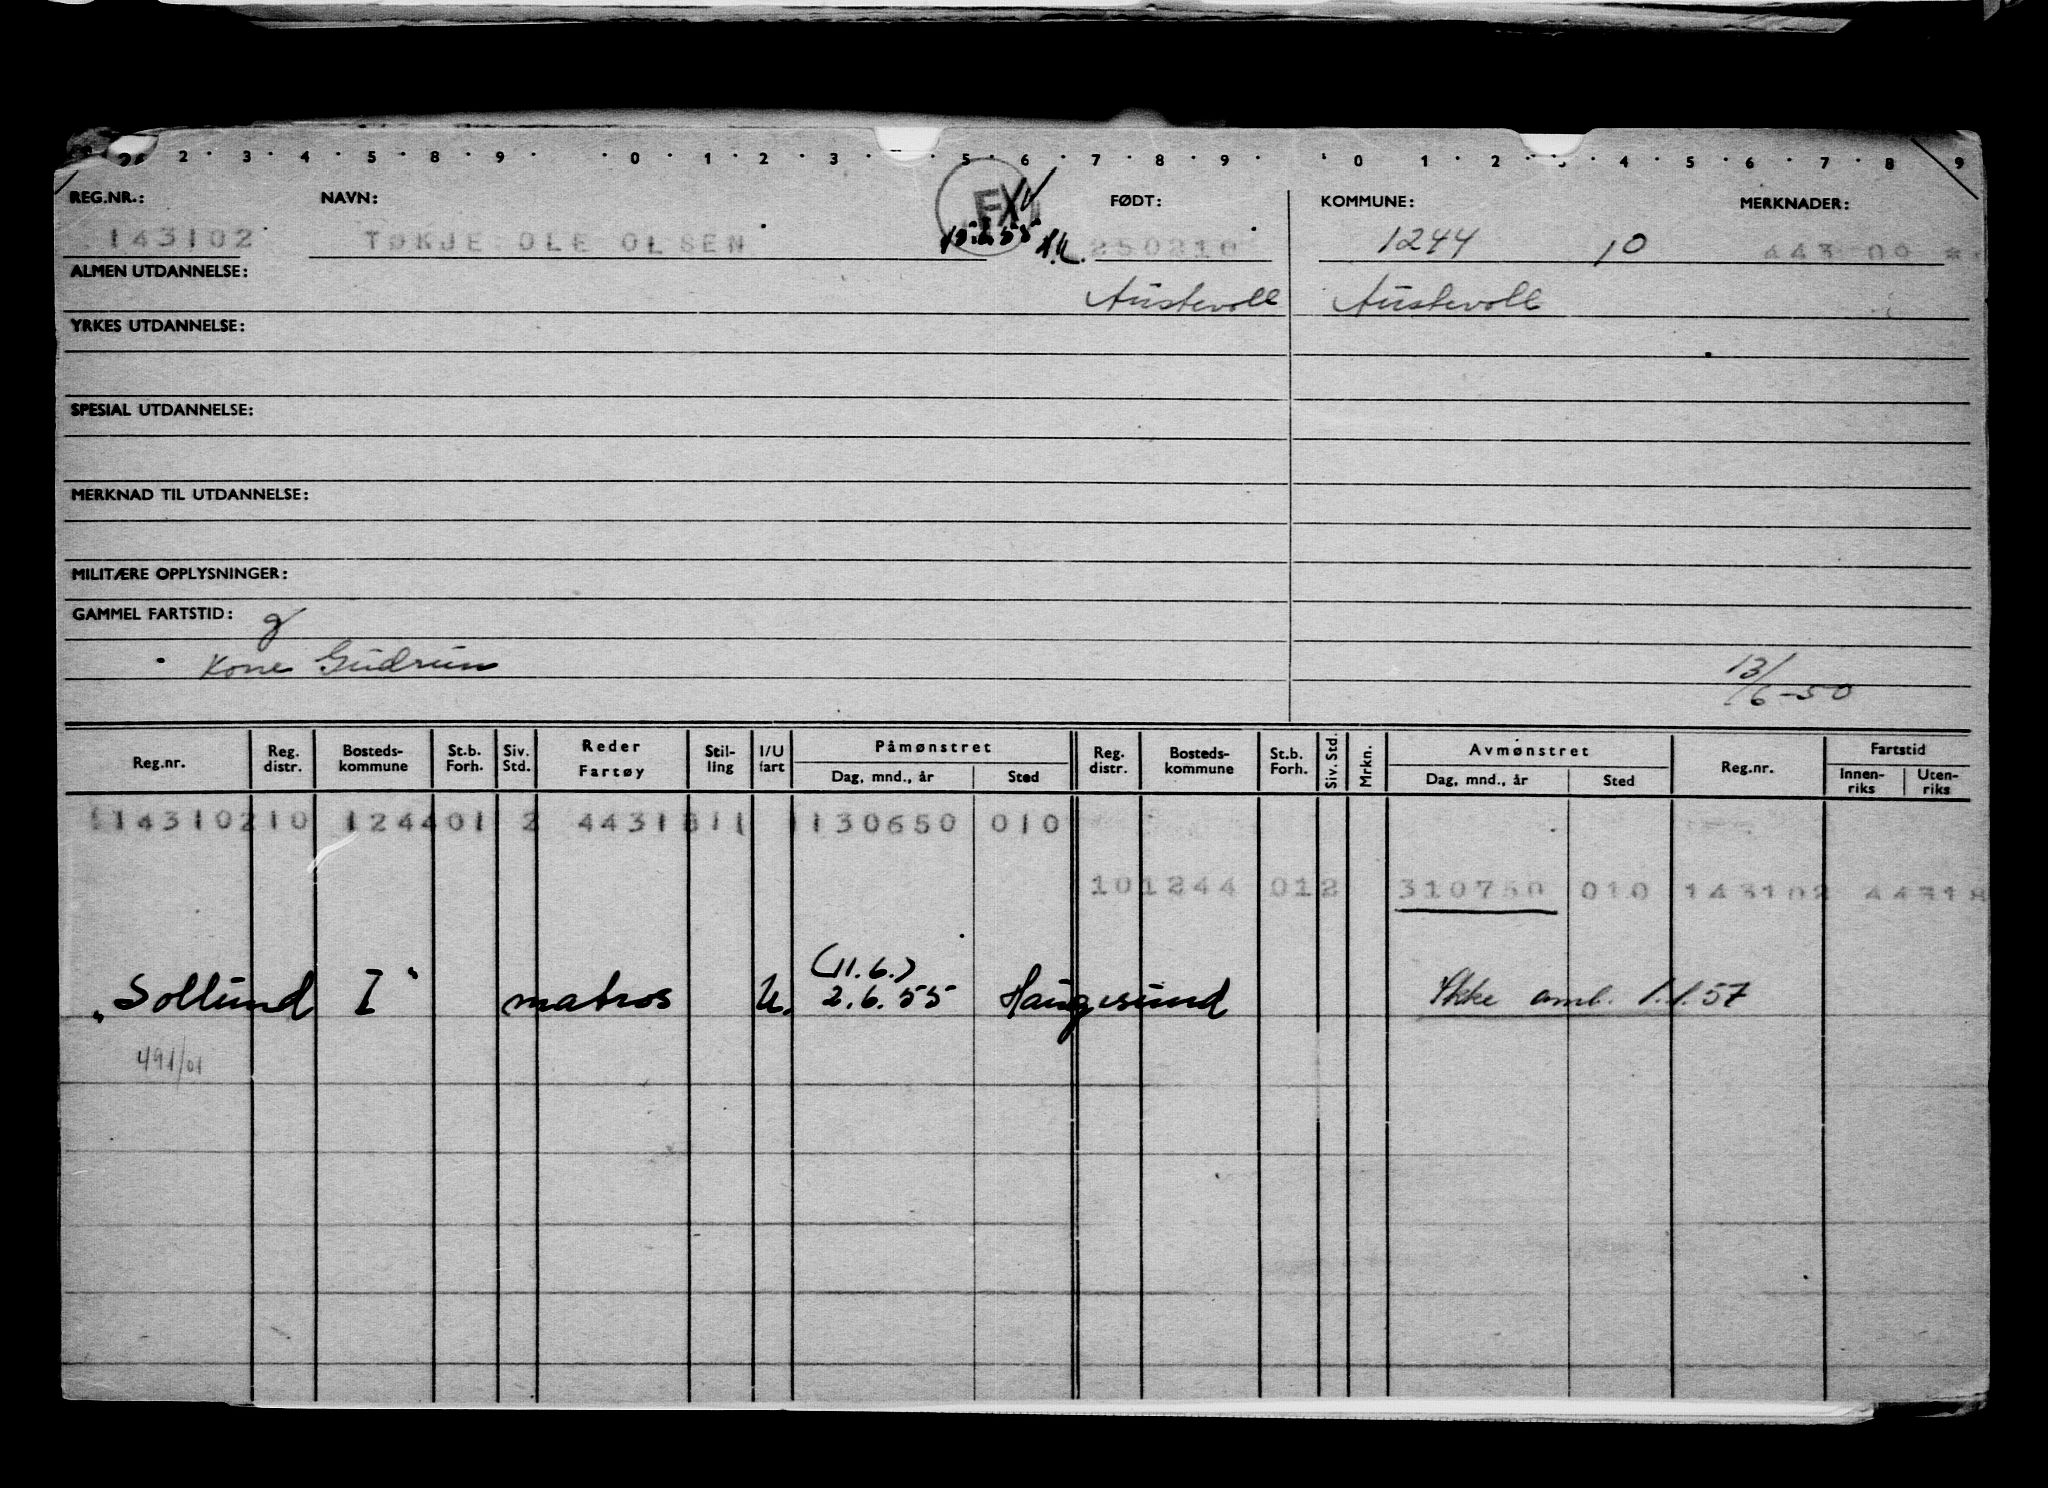 2 · 3 · 4 · 5 · 8 · 9 · · 0 · 1 · 2 · 3 · · 5 · 6 · 7 · 8 · 9 · · 0 · 1 · 2 · 3 · 4 · 5 · 6 · 7 · 8 · 9
REG.NR.: NAVN: FØDT: KOMMUNE: MERKNADER:
143102 TØKJE OLE OLSEN 250210 1244 10 443 09 *
ALMEN UTDANNELSE: Austevoll Austevoll
YRKES UTDANNELSE:
SPESIAL UTDANNELSE:
MERKNAD TIL UTDANNELSE:
MILITÆRE OPPLYSNINGER:
GAMMEL FARTSTID: g
Kone Gudrun 13/6-50
Reg.nr. Reg. distr. Bosteds-kommune St.b. Forh. Siv. Std. Reder Fartøy Stil-ling I/U fart Påmønstret Dag, mnd., år Sted Reg. distr. Bosteds-kommune St.b. Forh. Siv. Std. Mrkn. Avmønstret Dag, mnd., år Sted Reg.nr. Fartstid Innen-riks Uten-riks
143102 10 1244 01 2 4431811 1130650 010
10 1244 012 310750 010 143102 44318
(11.6.)
„Sollund I“ matros U. 2.6.55 Haugesund Ikke omb. 1.1.57
491/01